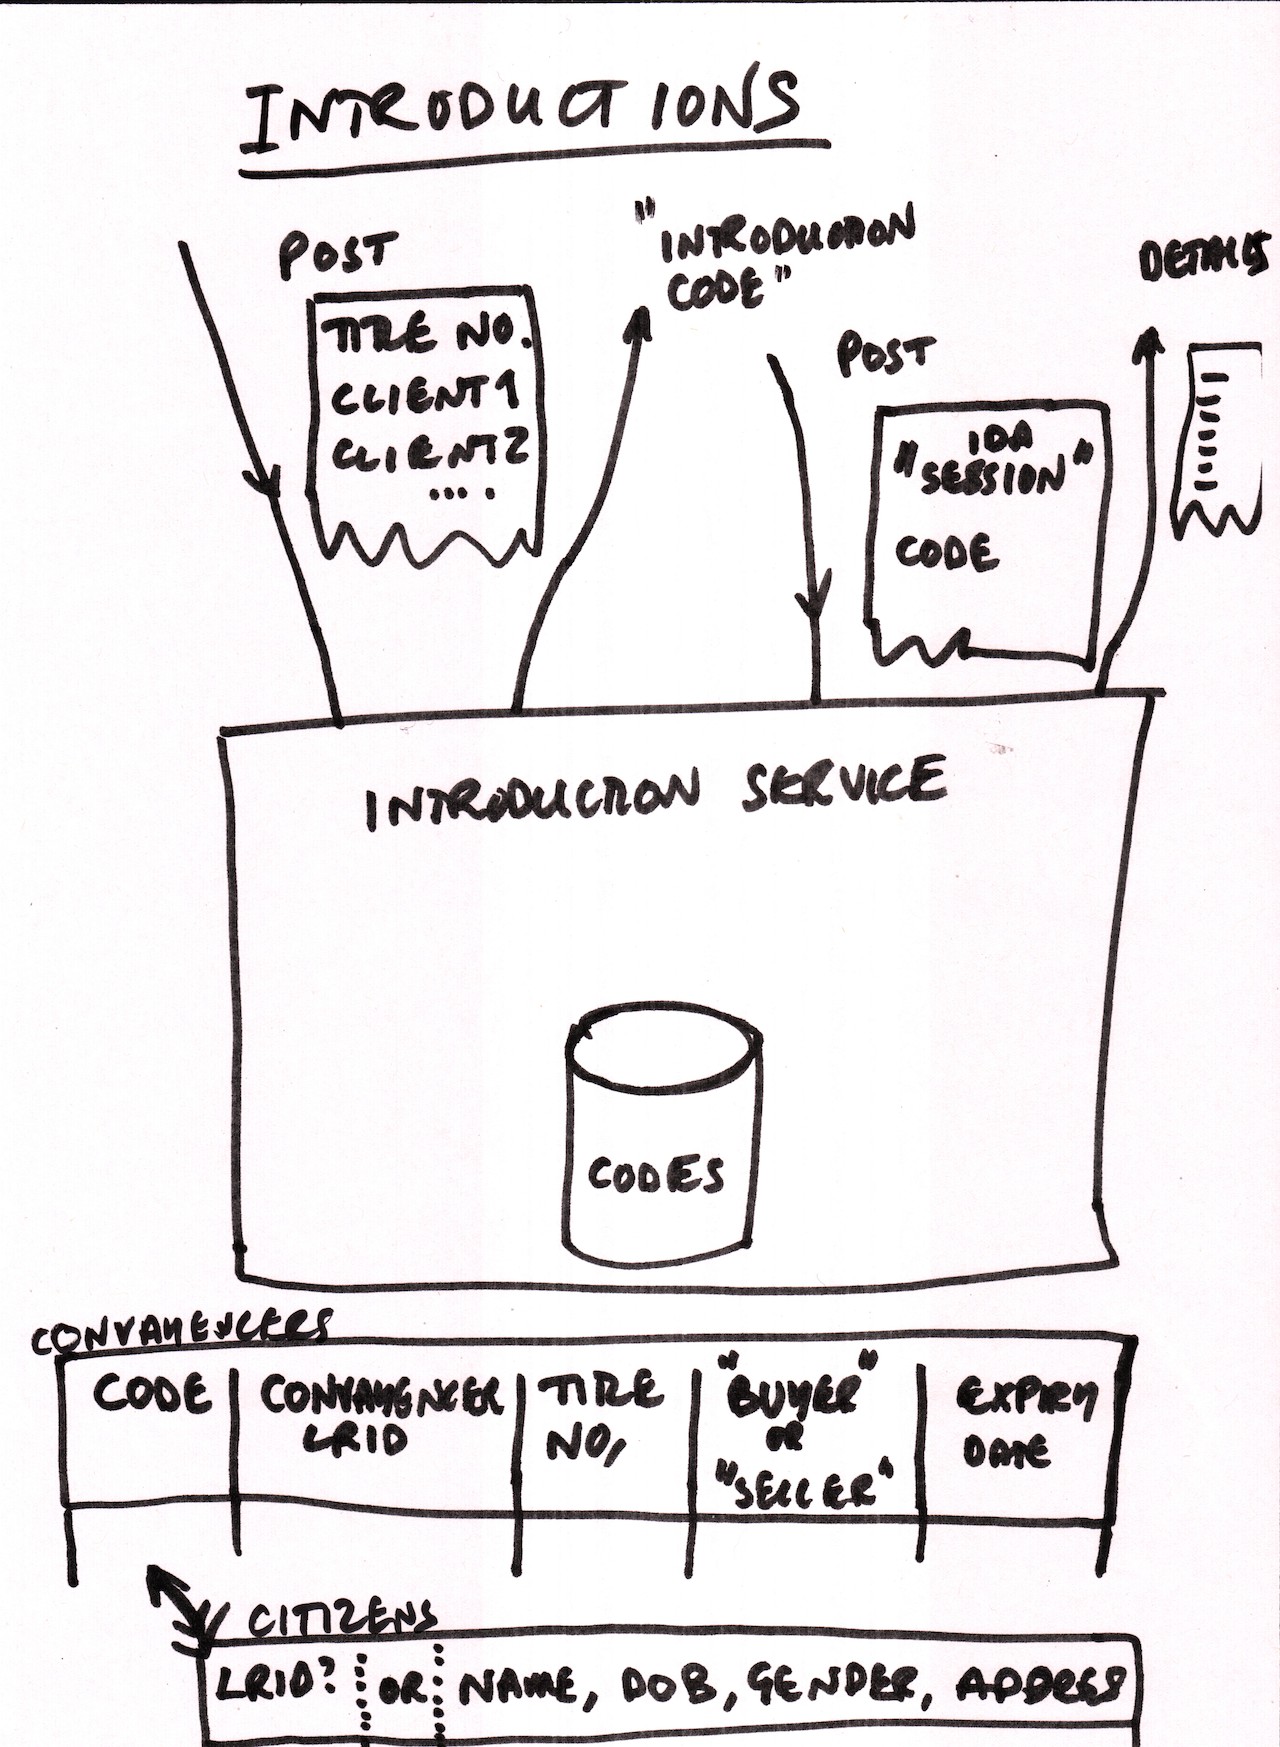 INTRODUCTIONS
POST
TITLE NO.
CLIENT1
CLIENT2
....
"INTRODUCTION
CODE"
POST
IDA
"SESSION"
CODE
DETAILS
INTRODUCTION SERVICE
CODES
CONVAYENCERS
CODE
CONVAYENCER
LRID
TITLE
NO,
"BUYER"
OR
"SELLER"
EXPIRY
DATE
CITIZENS
LRID? OR NAME, DOB, GENDER, ADDRESS